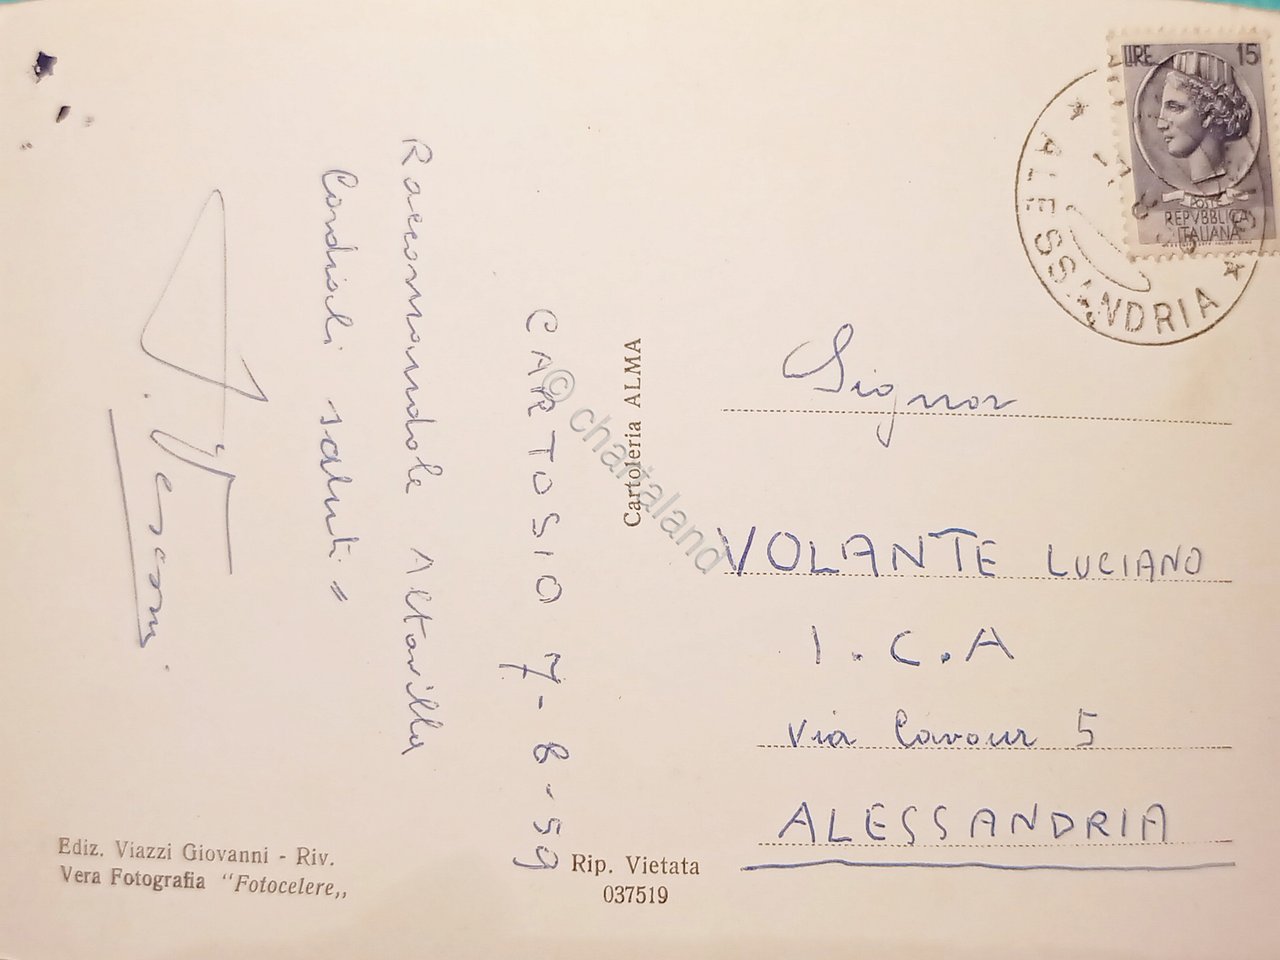 CARTOSIO 7-8-59
Raccomandole Altavilla
Cordiali saluti =
Cartoleria ALMA
LIRE 15
POSTE
REPVBBLICA
ITALIANA
ALESSANDRIA
Signor
VOLANTE LUCIANO
I.C.A
Via Cavour 5
ALESSANDRIA
Ediz. Viazzi Giovanni - Riv.
Vera Fotografia "Fotocelere,,
Rip. Vietata
037519
© chartaland